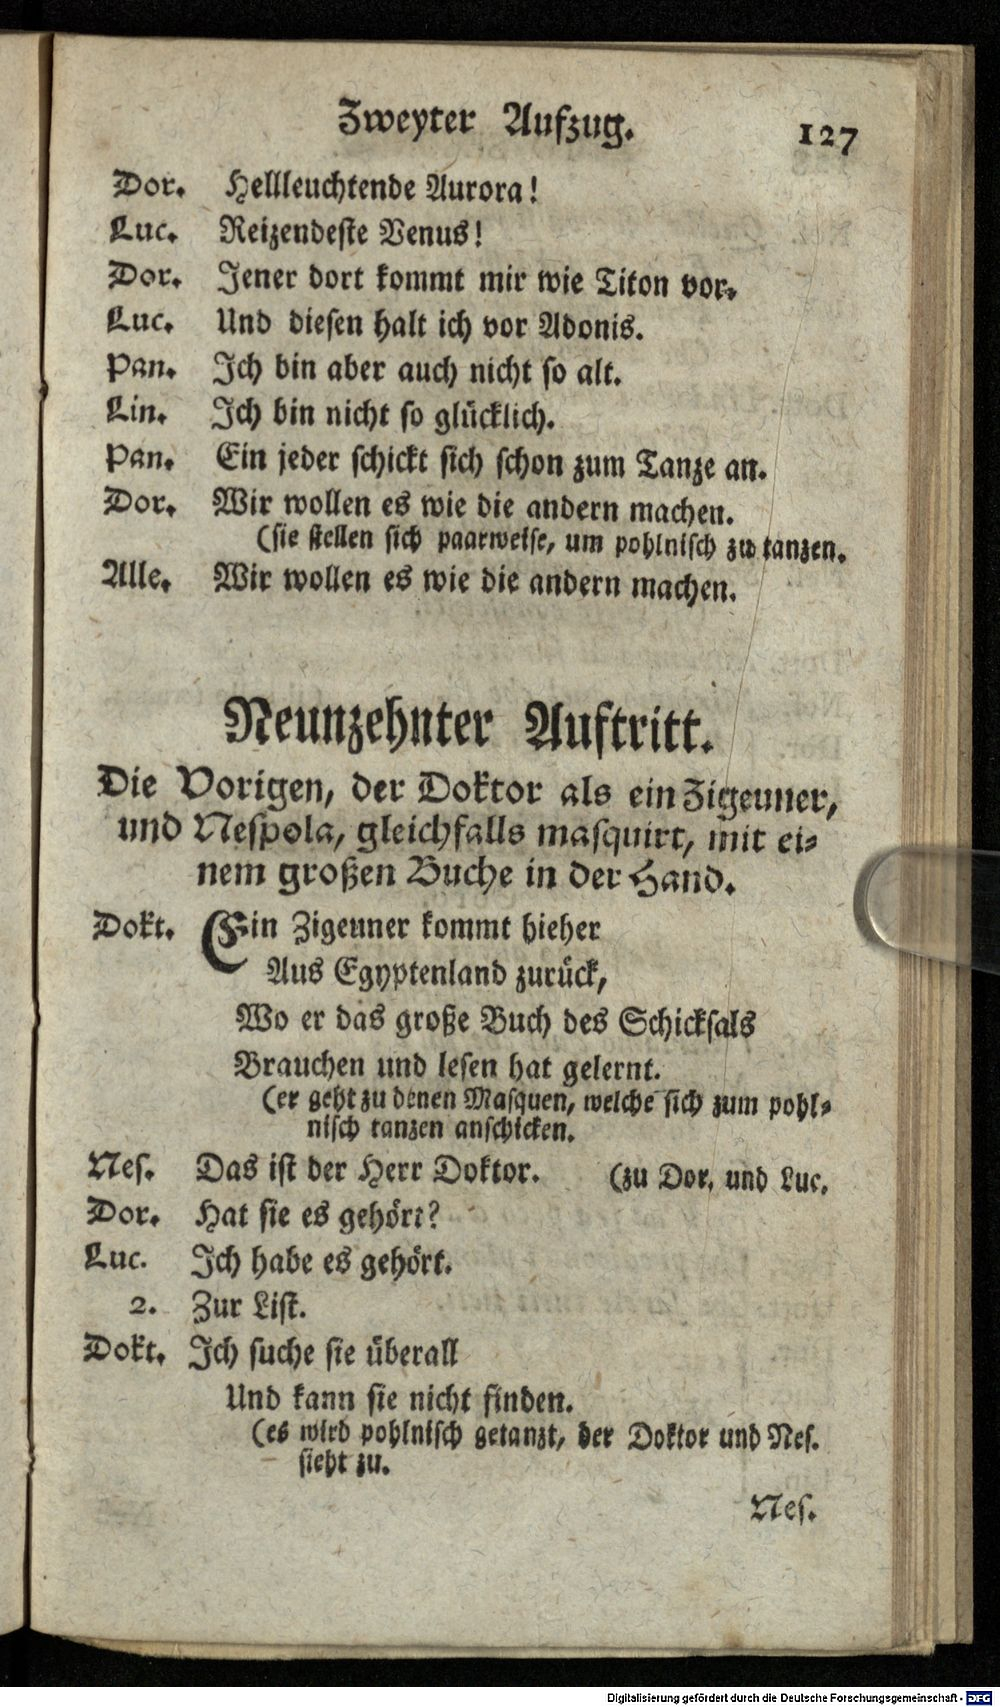 Zweyter Aufzug. 127
Dor. Hellleuchtende Aurora!
Luc. Reizendeste Venus!
Dor. Jener dort kommt mir wie Titon vor.
Luc. Und diesen halt ich vor Adonis.
Pan. Ich bin aber auch nicht so alt.
Lin. Ich bin nicht so glücklich.
Pan. Ein jeder schickt sich schon zum Tanze an.
Dor. Wir wollen es wie die andern machen.
(sie stellen sich paarweise, um pohlnisch zu tanzen.
Alle. Wir wollen es wie die andern machen.
Neunzehnter Auftritt.
Die Vorigen, der Doktor als ein Zigeuner,
und Nespola, gleichfalls masquirt, mit ei-
nem großen Buche in der Hand.
Dokt. Ein Zigeuner kommt hieher
Aus Egyptenland zurück,
Wo er das große Buch des Schicksals
Brauchen und lesen hat gelernt.
(er geht zu denen Masquen, welche sich zum pohl-
nisch tanzen anschicken.
Nes. Das ist der Herr Doktor. (zu Dor. und Luc.
Dor. Hat sie es gehört?
Luc. Ich habe es gehört.
2. Zur List.
Dokt. Ich suche sie überall
Und kann sie nicht finden.
(es wird pohlnisch getanzt, der Doktor und Nes.
sieht zu.
Nes.
Digitalisierung gefördert durch die Deutsche Forschungsgemeinschaft - DFG